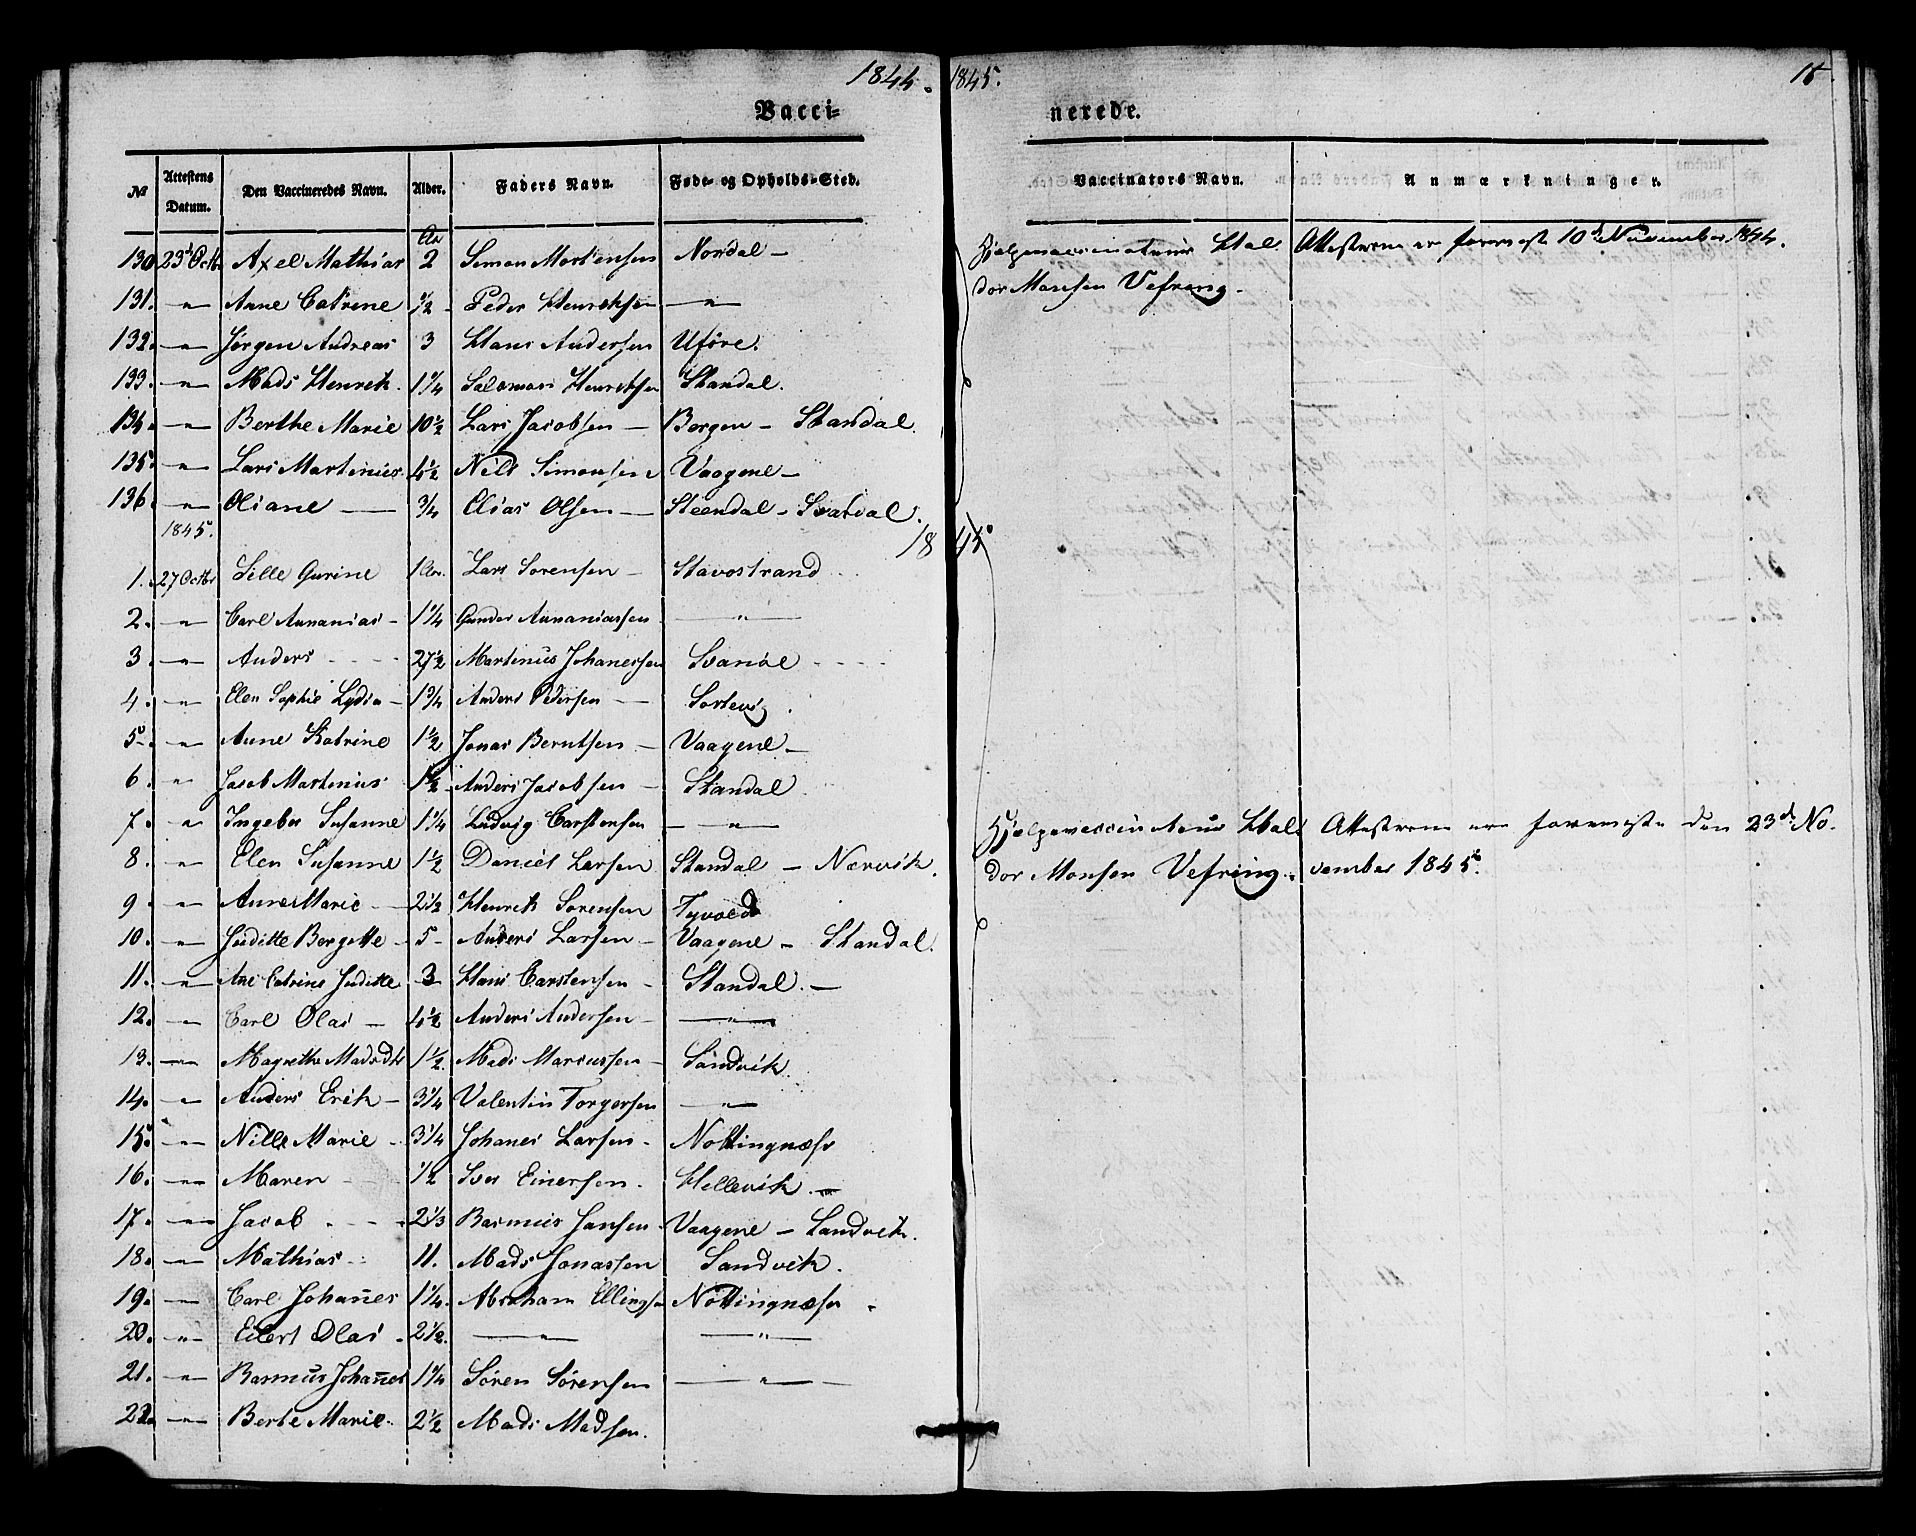 1844. 1845. 18
Vacci- nerede.
No Attestens Datum. Den Vaccineredes Navn. Alder. Faders Navn. Føde- og Opholds-Sted. Vaccinators Navn. Anmærkninger.
130 23d Octbr Axel Mathias 2 Simon Mortensen Nordal —
131. " Anne Catrine 1/2 Peder Henriksen "
132. " Jørgen Andreas 3 Hans Andersen Uføre.
133. " Mads Henrik. 1 1/4 Salomon Henriksen Standal.
134. " Berthe Marie 10 1/2 Lars Jacobsen — Bergen — Standal.
135. " Lars Martinus 4 1/2 Nils Simonsen Vaagene —
136. " Oliane — 3/4 Elias Olsen — Steendal — Svardal.
Hjelpevaccinateur Hal Attesterne er foreviste 10de November 1844.
dor Monsen Vefring.
1845.
1845
1. 27 Octbr Sille Gurine 1 Aar. Lars Sørensen — Stavostrand
2. " Carl Annanias — 1 1/4 Gunder Annaniassen "
3. " Anders 2 1/2 Martinus Johanessen Svanøe
4. " Elen Sophie Lydia — 1 3/4 Anders Pedersen — Sortevig.
5. " Anne Katrine 1 1/2 Jonas Berntsen — Vaagene —
6. " Jacob Martinus 1 1/2 Anders Jacobsen — Standal
7. " Ingebor Susanne 1 1/4 Ludvig Carstensen "
8. " Elen Susanne 1 1/2 Daniel Larsen Standal — Nærvik.
9. " Anne Marie — 2 1/2 Henrik Sørensen Tyvold
10. " Juditte Bergette — 5 — Anders Larsen — Vaagene — Standal.
11. " Ane Catrine Juditte 3 Hans Carstensen — Standal. —
12. " Carl Olai — 4 1/2 Anders Andersen — "
13. " Magrethe 1 1/2 Mads Marcussen — Sandvik.
14. " Anders Erik — 3 1/4 Valentin Torgersen "
15. " Nille Marie 3 1/4 Johanes Larsen — Nottingnæss
16. " Maren 1/2 Iver Einersen. Hellevik. —
17. " Jacob 2 1/3 Rasmus Jansen Vaagene — Sandvik.
18. " Mathias 11. Mads Jonassen Sandvik.
19. " Carl Johanes 1 1/4. Abraham Ellingsen Nottingnæss.
20. " Eilert Olai 2 1/2. " "
21. " Rasmus Johanes 1 1/4 Søren Sørensen "
22. " Berte Marie 2 1/2 Mads Madsen.
Hjelpevaccinateur Hal Attesterne ere foreviste den 23de No-
dor Monsen Vefring. vember 1845.